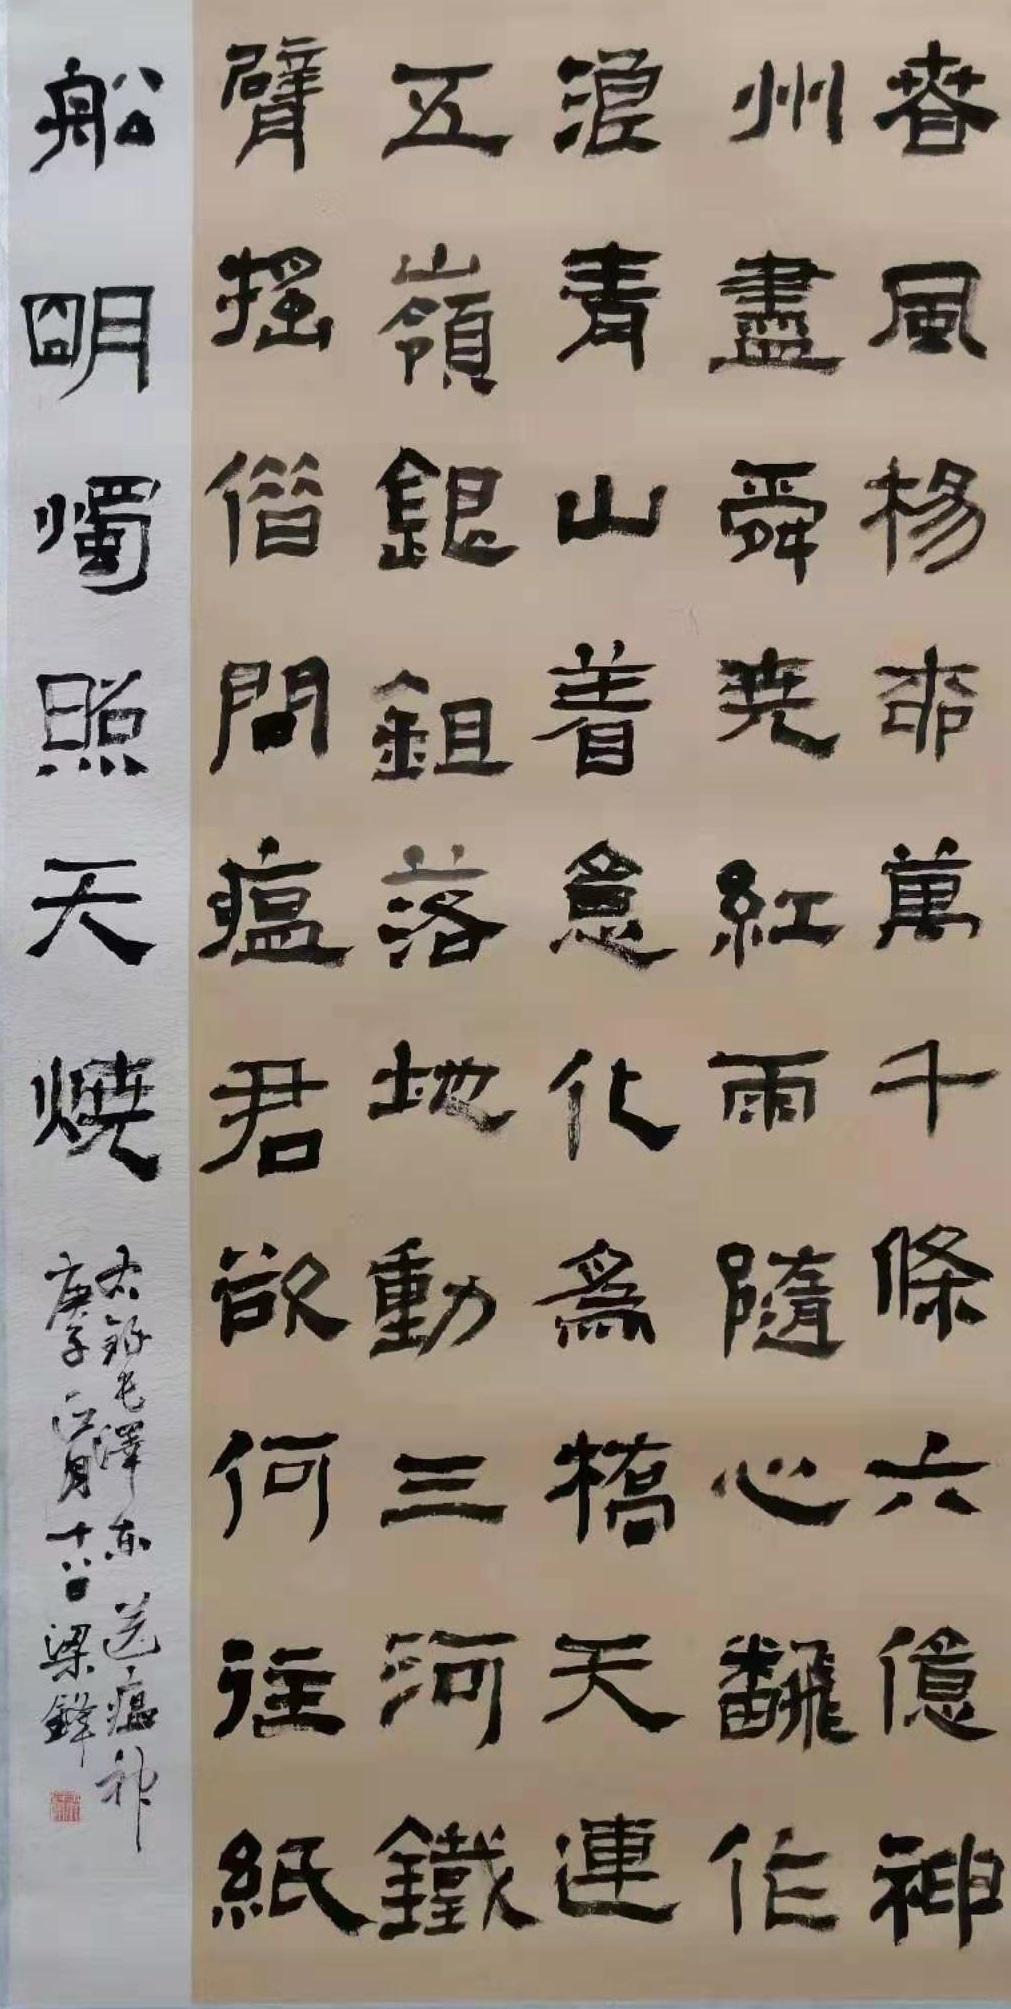 春風楊柳萬千條六億神
州盡舜堯紅雨隨心飜作
浪青山着意化為橋天連
五嶺銀鉏落地動三河鐵
臂搖借問瘟君欲何往紙
船明燭照天燒
右錄毛澤東送瘟神
庚子正月十八日梁鋒